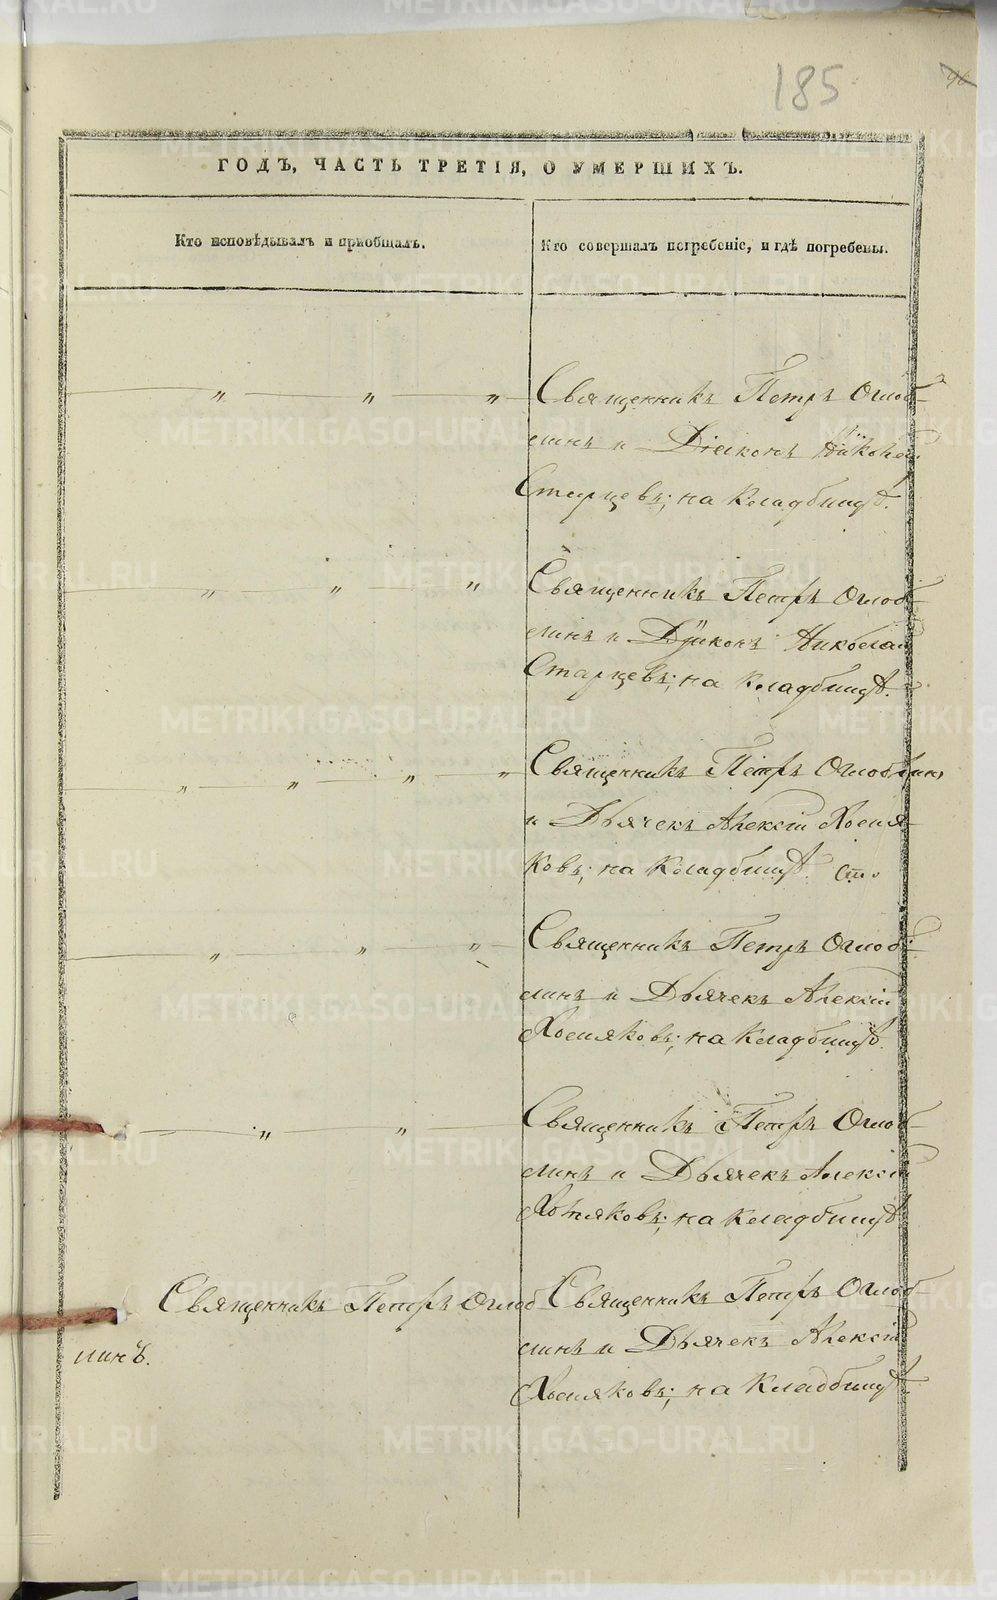 185
ГОДЪ, ЧАСТЬ ТРЕТІЯ, О УМЕРШИХЪ.
Кто исповѣдывалъ и пріобщалъ.
Кто совершалъ погребеніе, и гдѣ погребены.
— „ — „ — „ — Священникъ Петръ Оглоб-
линъ и Діаконъ Николай
Старцевъ; на Кладбищѣ.
— „ — „ — „ Священникъ Петръ Оглоб-
линъ и Діаконъ Николай
Старцевъ; на Кладбищѣ.
— „ — „ — „ — „ Священникъ Петръ Оглоблинъ
и Дьячекъ Алексій Хомя-
ковъ; на Кладбищѣ.
— „ — „ — „ — Священникъ Петръ Оглоб-
линъ и Дьячекъ Алексій
Хомяковъ; на Кладбищѣ.
— „ — „ — Священникъ Петръ Оглоб-
линъ и Дьячекъ Алексій
Хомяковъ; на Кладбищѣ.
Священникъ Петръ Оглоб-
линъ.
Священникъ Петръ Оглоб-
линъ и Дьячекъ Алексій
Хомяковъ; на Кладбищѣ.
METRIKI.GASO-URAL.RU